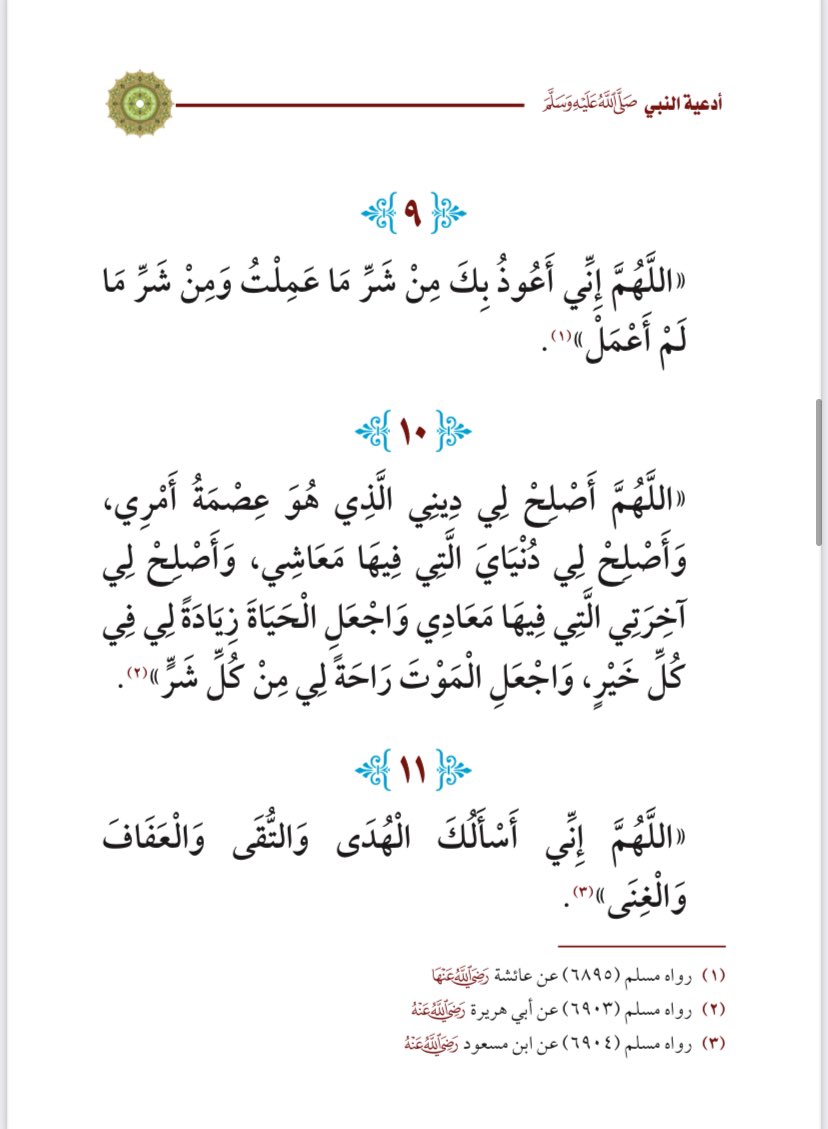 أدعية النبي صَلَّى اللَّهُ عَلَيْهِ وَسَلَّمَ
٩
«اللَّهُمَّ إِنِّي أَعُوذُ بِكَ مِنْ شَرِّ مَا عَمِلْتُ وَمِنْ شَرِّ مَا
لَمْ أَعْمَلْ»(١).
١٠
«اللَّهُمَّ أَصْلِحْ لِي دِينِي الَّذِي هُوَ عِصْمَةُ أَمْرِي،
وَأَصْلِحْ لِي دُنْيَايَ الَّتِي فِيهَا مَعَاشِي، وَأَصْلِحْ لِي
آخِرَتِي الَّتِي فِيهَا مَعَادِي وَاجْعَلِ الْحَيَاةَ زِيَادَةً لِي فِي
كُلِّ خَيْرٍ، وَاجْعَلِ الْمَوْتَ رَاحَةً لِي مِنْ كُلِّ شَرٍّ»(٢).
١١
«اللَّهُمَّ إِنِّي أَسْأَلُكَ الْهُدَى وَالتُّقَى وَالْعَفَافَ
وَالْغِنَى»(٣).
(١) رواه مسلم (٦٨٩٥) عن عائشة رَضِيَ اللَّهُ عَنْهَا
(٢) رواه مسلم (٦٩٠٣) عن أبي هريرة رَضِيَ اللَّهُ عَنْهُ
(٣) رواه مسلم (٦٩٠٤) عن ابن مسعود رَضِيَ اللَّهُ عَنْهُ